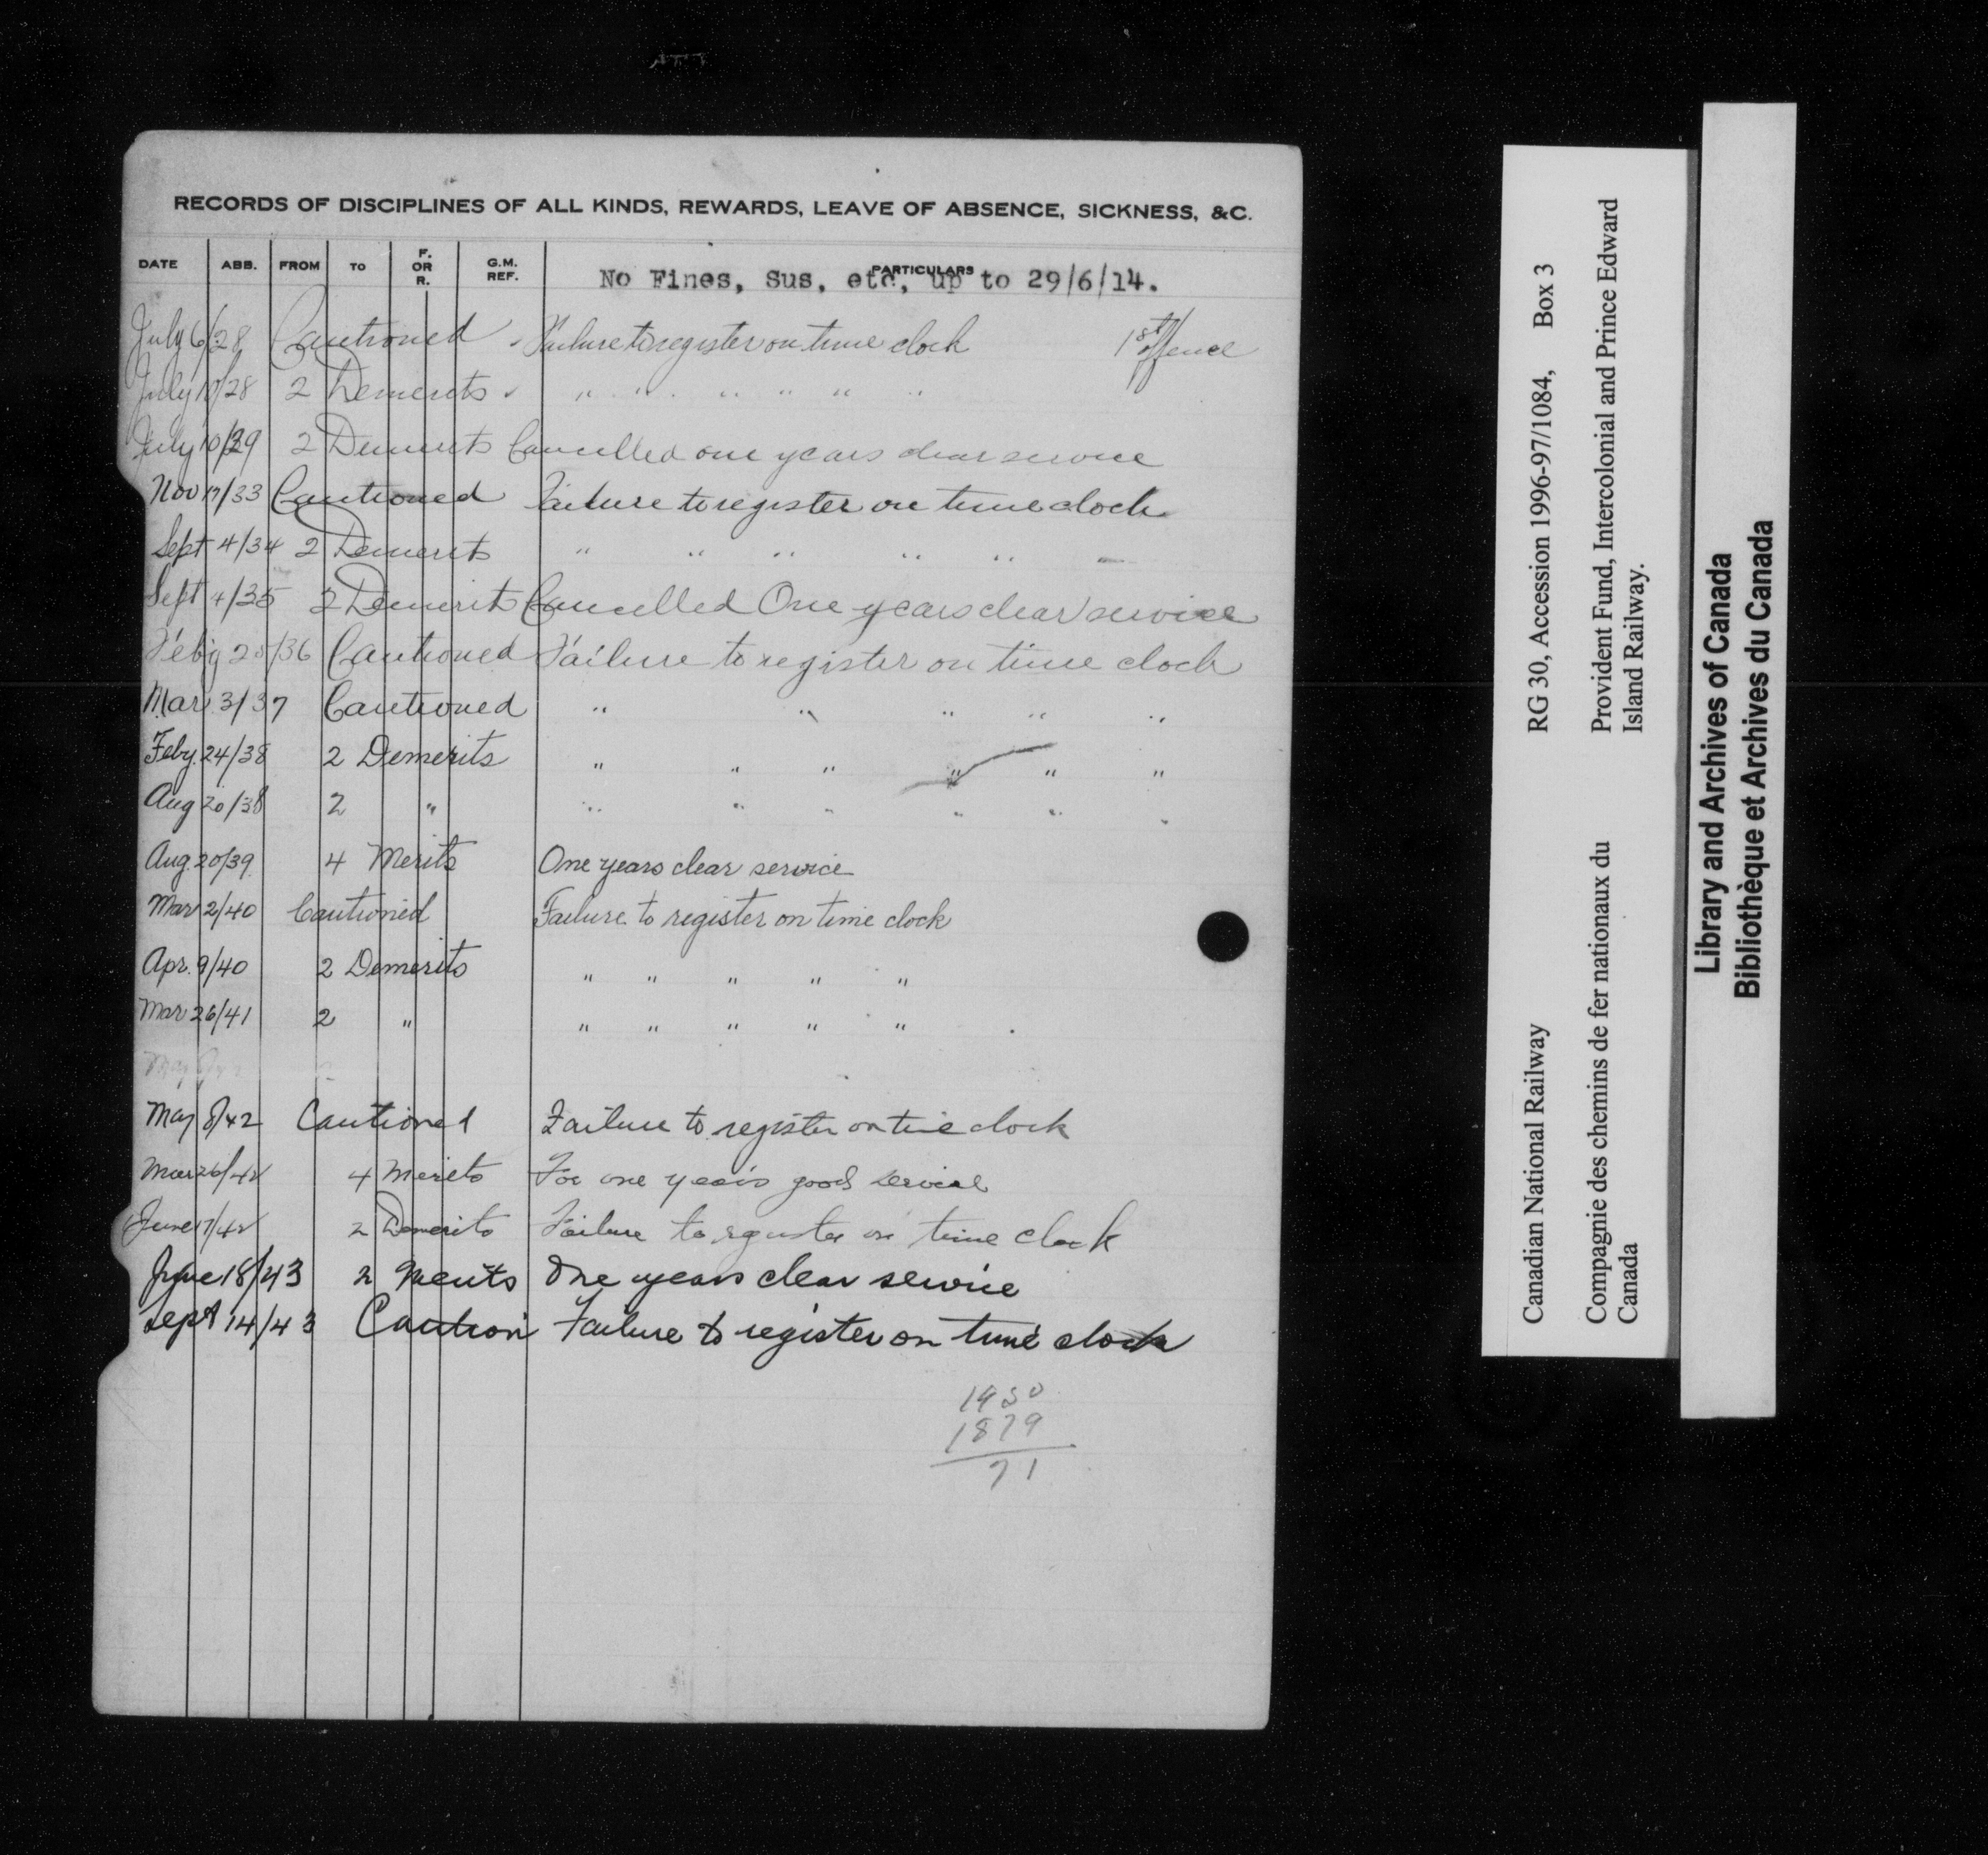 RECORDS OF DISCIPLINES OF ALL KINDS, REWARDS, LEAVE OF ABSENCE, SICKNESS, &C.
DATE ABB. FROM TO F. OR R. G.M. REF. PARTICULARS
No Fines, Sus, etc, up to 29/6/14.
July 6/28 Cautioned Failure to register on time clock 1st offence
July 10/28 2 Demerits " " " " " "
July 10/29 2 Demerits Cancelled one years clear service
Nov 17/33 Cautioned Failure to register on time clock
Sept 4/34 2 Demerits " " " " "
Sept 4/35 2 Demerits Cancelled One years clear service
Feby /36 Cautioned Failure to register on time clock
Mar 3/37 Cautioned " " " " "
Feby. 24/38 2 Demerits " " " " " "
Aug 20/38 2 " " " " " " "
Aug. 20/39 4 Merits One years clear service
Mar 2/40 Cautioned Failure to register on time clock
Apr. 9/40 2 Demerits " " " " "
Mar 26/41 2 " " " " " "
May 8/42 Cautioned Failure to register on time clock
Mar 26/42 4 Merits For one year's good service
June 17/42 2 Demerits Failure to register on time clock
June 18/43 2 Merits One years clear service
Sept 14/43 Caution Failure to register on time clock
1950
1879
71
Canadian National Railway RG 30, Accession 1996-97/1084, Box 3
Compagnie des chemins de fer nationaux du Canada
Provident Fund, Intercolonial and Prince Edward Island Railway.
Library and Archives of Canada
Bibliothèque et Archives du Canada